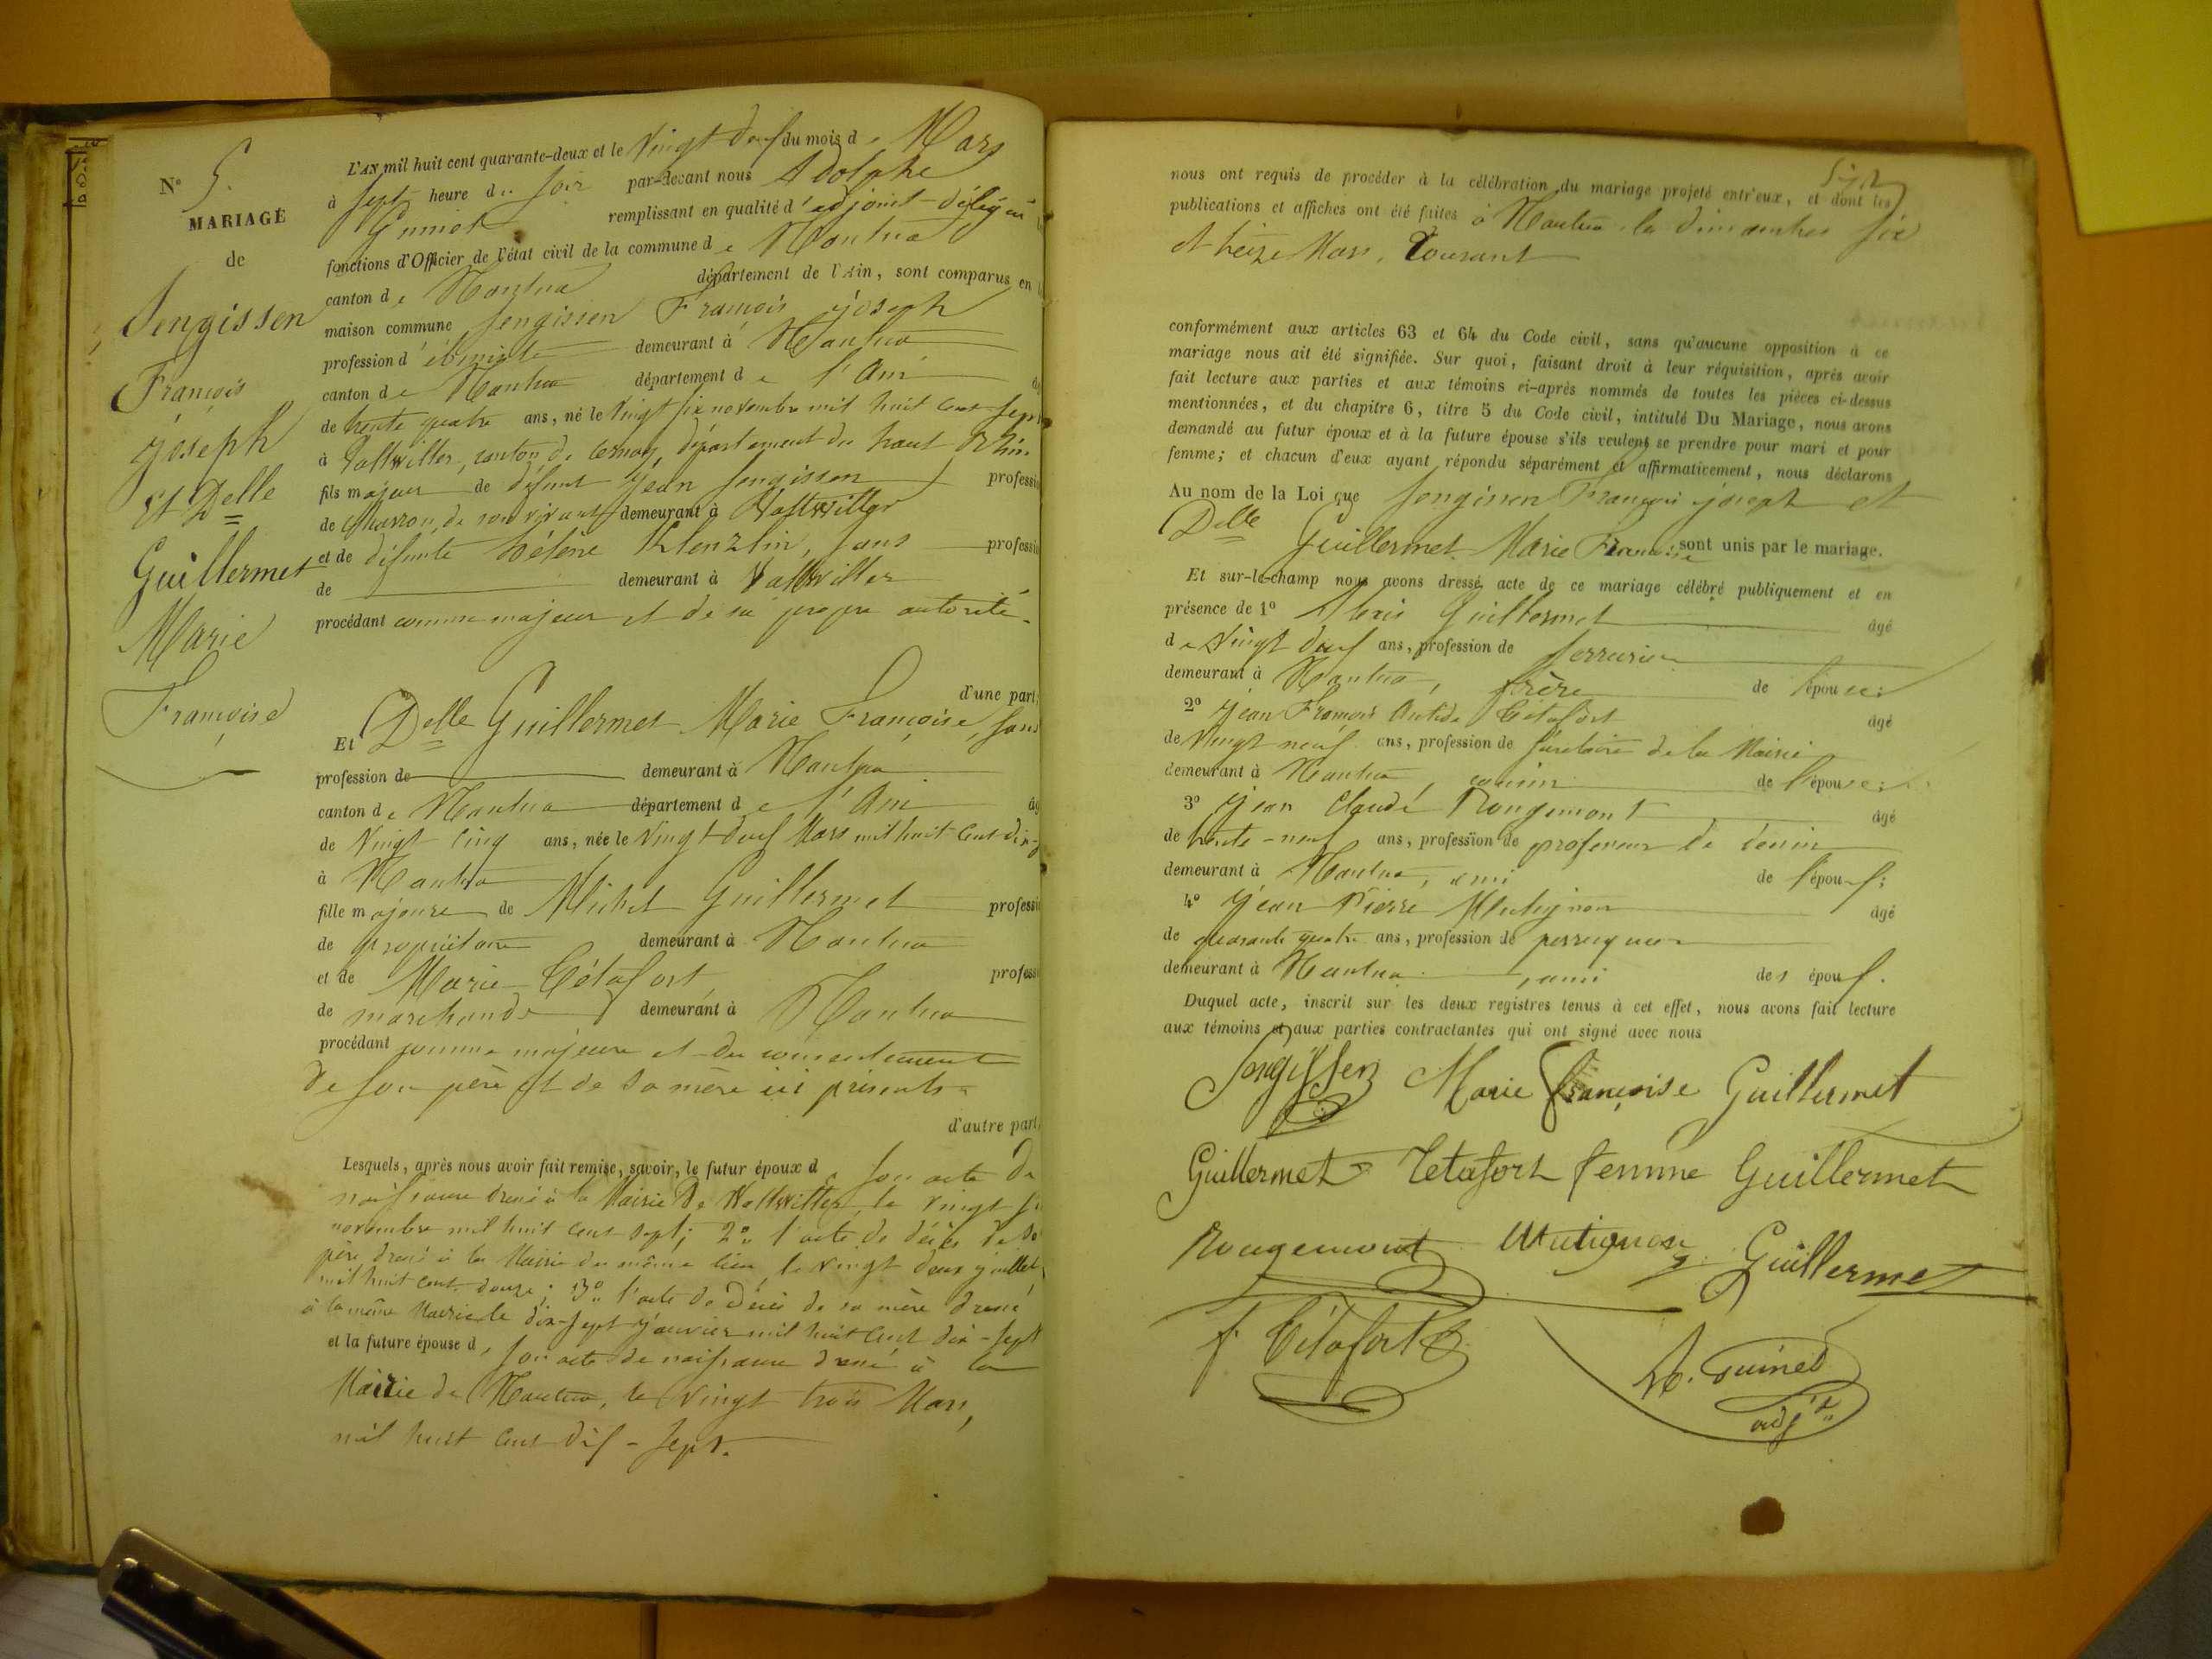 N° 5.
MARIAGE
de
Sengissen
François
joseph
Et Delle
Guillermet
Marie
Françoise
L'AN mil huit cent quarante-deux et le Vingt deux du mois de Mars
à sept heure du soir par-devant nous Adolphe
Guinet remplissant en qualité d'adjoint-délégué
fonctions d'Officier de l'état civil de la commune de Nantua
canton de Nantua département de l'Ain, sont comparus en
maison commune Sengissen François joseph
profession d'ébéniste demeurant à Nantua
canton de Nantua département de l'Ain
de trente quatre ans, né le Vingt six novembre mil huit cent sept
à Vattwiller, canton de Cernay, département du haut Rhin.
fils majeur de défunt Jean Sengissen professi
de Charron, de son vivant demeurant à Vattwiller
et de défunte hélène Klenzlin, sans professi
de demeurant à Vattwiller
procédant comme majeur et de sa propre autorité.
d'une part;
Et Delle Guillermet Marie Françoise, sans
profession de demeurant à Nantua
canton de Nantua département de l'Ain
de Vingt cinq ans, née le Vingt deux Mars mil huit cent dix-
à Nantua
fille majeure de Michel Guillermet professi
de propriétaire demeurant à Nantua
et de Marie Tétafort professi
de marchande demeurant à Nantua
procédant comme majeure et du consentement
de son père et de sa mère ici présents.
d'autre part
Lesquels, après nous avoir fait remise, savoir, le futur époux de son acte de
naissance dressé à la Mairie de Wattwiller, le vingt
novembre mil huit cent sept; 2° l'acte de décès de
père dressé à la Mairie du même lieu, le vingt deux juillet
mil huit cent douze; 3° l'acte de décès de sa mère dressé
à la même Mairie le dix-sept janvier mil huit cent dix-sept
et la future épouse de son acte de naissance dressé à la
Mairie de Nantua, le vingt trois Mars,
mil huit cent dix-sept.
nous ont requis de procéder à la célébration du mariage projeté entr'eux, et dont les
publications et affiches ont été faites à Nantua les dimanches six
et treize Mars, Courant
conformément aux articles 63 et 64 du Code civil, sans qu'aucune opposition à ce
mariage nous ait été signifiée. Sur quoi, faisant droit à leur réquisition, après avoir
fait lecture aux parties et aux témoins ci-après nommés de toutes les pièces ci-dessus
mentionnées, et du chapitre 6, titre 5 du Code civil, intitulé Du Mariage, nous avons
demandé au futur époux et à la future épouse s'ils veulent se prendre pour mari et pour
femme; et chacun d'eux ayant répondu séparément et affirmativement, nous déclarons
Au nom de la Loi que Sengissen François joseph et
Delle Guillermet Marie Françoise sont unis par le mariage.
Et sur-le-champ nous avons dressé acte de ce mariage célébré publiquement et en
présence de 1° Alexis Guillermet âgé
de Vingt deux ans, profession de serrurier
demeurant à Nantua, frère de l'épouse;
2° Jean François Tétafort âgé
de Vingt neuf ans, profession de secrétaire de la Mairie
demeurant à Nantua, cousin de l'épouse;
3° Jean Claude Rougemont âgé
de trente-neuf ans, profession de professeur de dessin
demeurant à Nantua, ami de l'époux;
4° Jean Pierre Mutignon âgé
de quarante quatre ans, profession de perruquier
demeurant à Nantua, ami des époux.
Duquel acte, inscrit sur les deux registres tenus à cet effet, nous avons fait lecture
aux témoins et aux parties contractantes qui ont signé avec nous
Sengissen Marie françoise Guillermet
Guillermet Tetafort femme Guillermet
Rougemont Mutignon Guillermet
f. Tétafort
A. Guinet
adjt